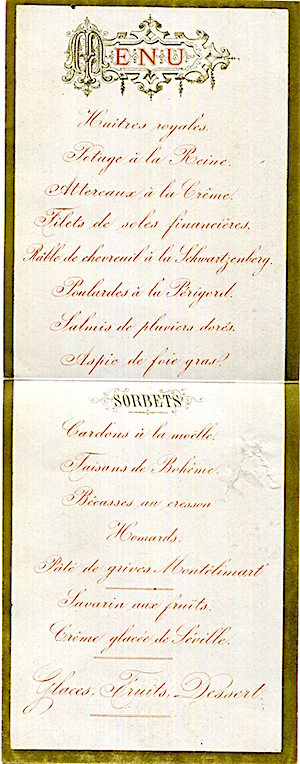 MENU
Huîtres royales.
Potage à la Reine.
Attereaux à la Crême.
Filets de soles financières.
Râble de chevreuil à la Schwartzenberg.
Poulardes à la Périgord.
Salmis de pluviers dorés.
Aspic de foie gras.
SORBETS
Cardons à la moëlle.
Faisans de Bohême.
Bécasses au cresson
Homards.
Pâté de grives Montélimart
Savarin aux fruits.
Crême glacée de Séville.
Glaces, Fruits, Dessert